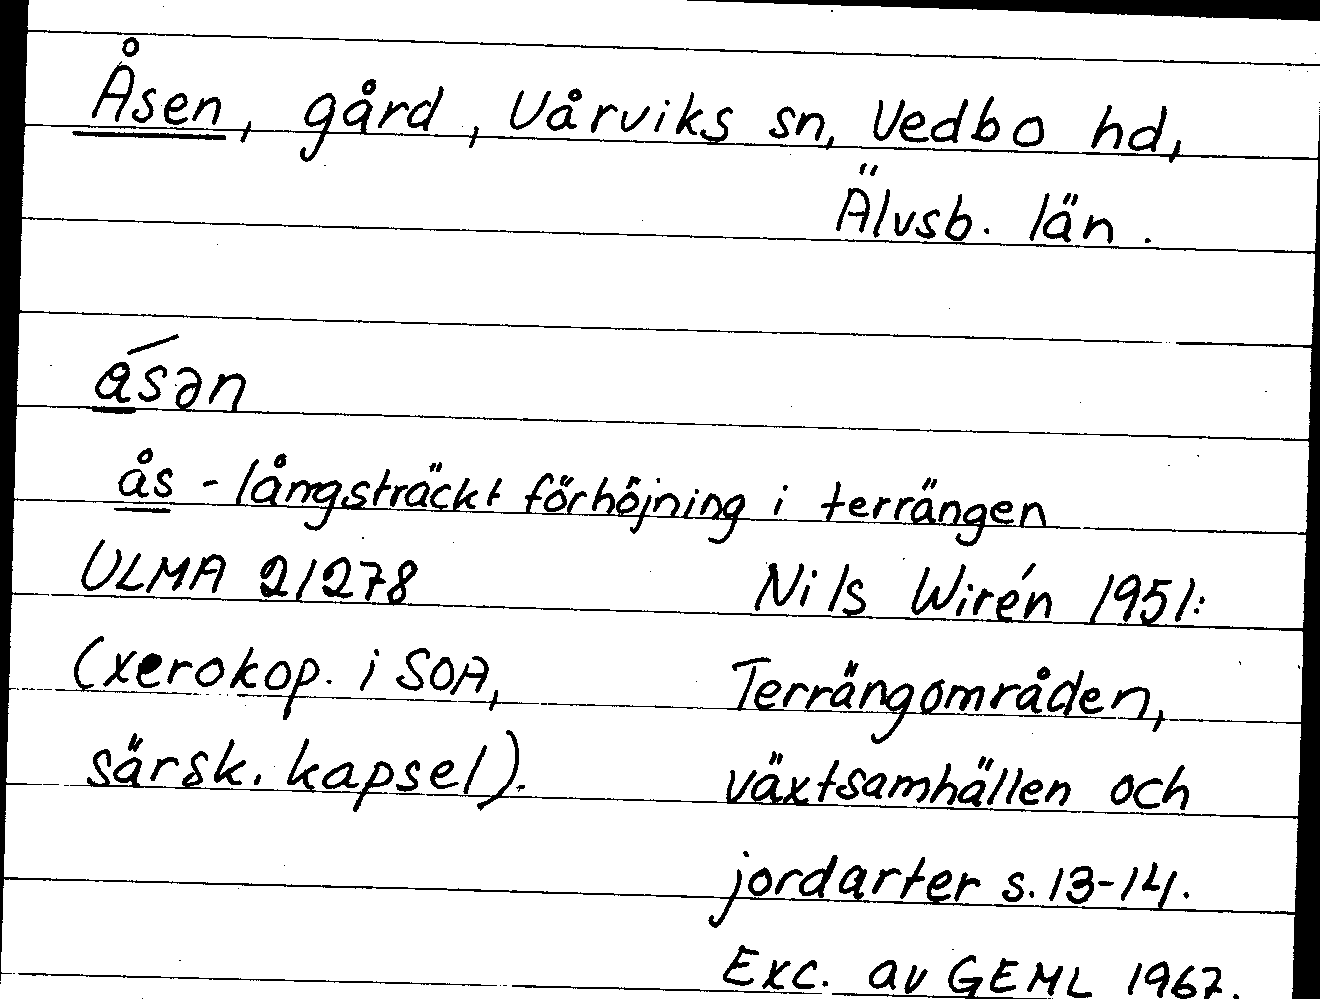 Åsen, gård, Vårviks sn, Vedbo hd,
Älvsb. län.
åsən
ås - långsträckt förhöjning i terrängen
ULMA 21278 Nils Wirén 1951:
(xerokop. i SOA, Terrängområden,
särsk. kapsel). växtsamhällen och
jordarter s. 13-14.
Exc. av GEML 1967.